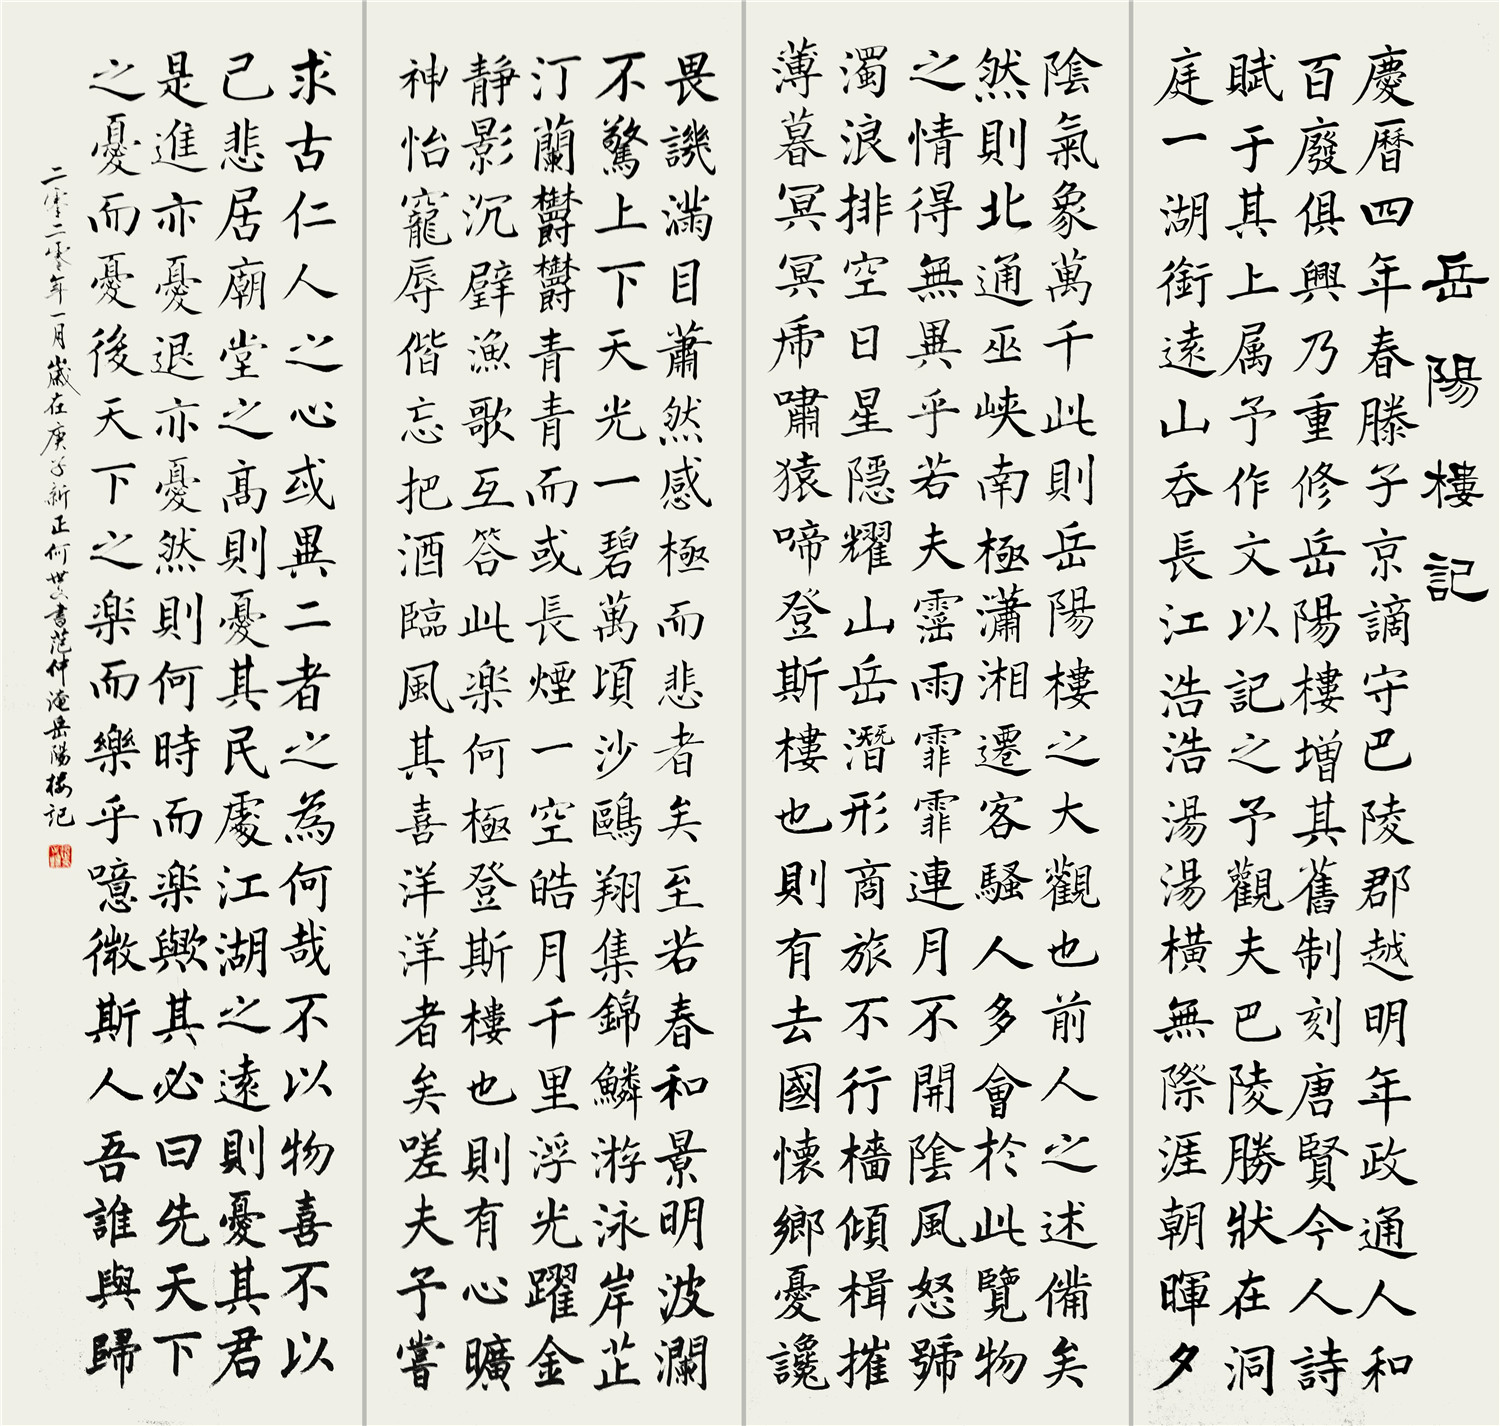 岳陽樓記
慶曆四年春滕子京謫守巴陵郡越明年政通人和
百廢俱興乃重修岳陽樓增其舊制刻唐賢今人詩
賦于其上属予作文以記之予觀夫巴陵勝狀在洞
庭一湖銜遠山吞長江浩浩湯湯橫無際涯朝暉夕
陰氣象萬千此則岳陽樓之大觀也前人之述備矣
然則北通巫峽南極瀟湘遷客騷人多會於此覽物
之情得無異乎若夫霪雨霏霏連月不開陰風怒號
濁浪排空日星隱耀山岳潛形商旅不行檣傾楫摧
薄暮冥冥虎嘯猿啼登斯樓也則有去國懷鄉憂讒
畏譏滿目蕭然感極而悲者矣至若春和景明波瀾
不驚上下天光一碧萬頃沙鷗翔集錦鱗游泳岸芷
汀蘭欝欝青青而或長煙一空皓月千里浮光躍金
靜影沉璧漁歌互答此楽何極登斯樓也則有心曠
神怡寵辱偕忘把酒臨風其喜洋洋者矣嗟夫予嘗
求古仁人之心或異二者之為何哉不以物喜不以
己悲居廟堂之高則憂其民處江湖之遠則憂其君
是進亦憂退亦憂然則何時而楽歟其必曰先天下
之憂而憂後天下之楽而樂乎噫微斯人吾誰與歸
二零二零年一月歲在庚子新正何世書范仲淹岳陽樓記